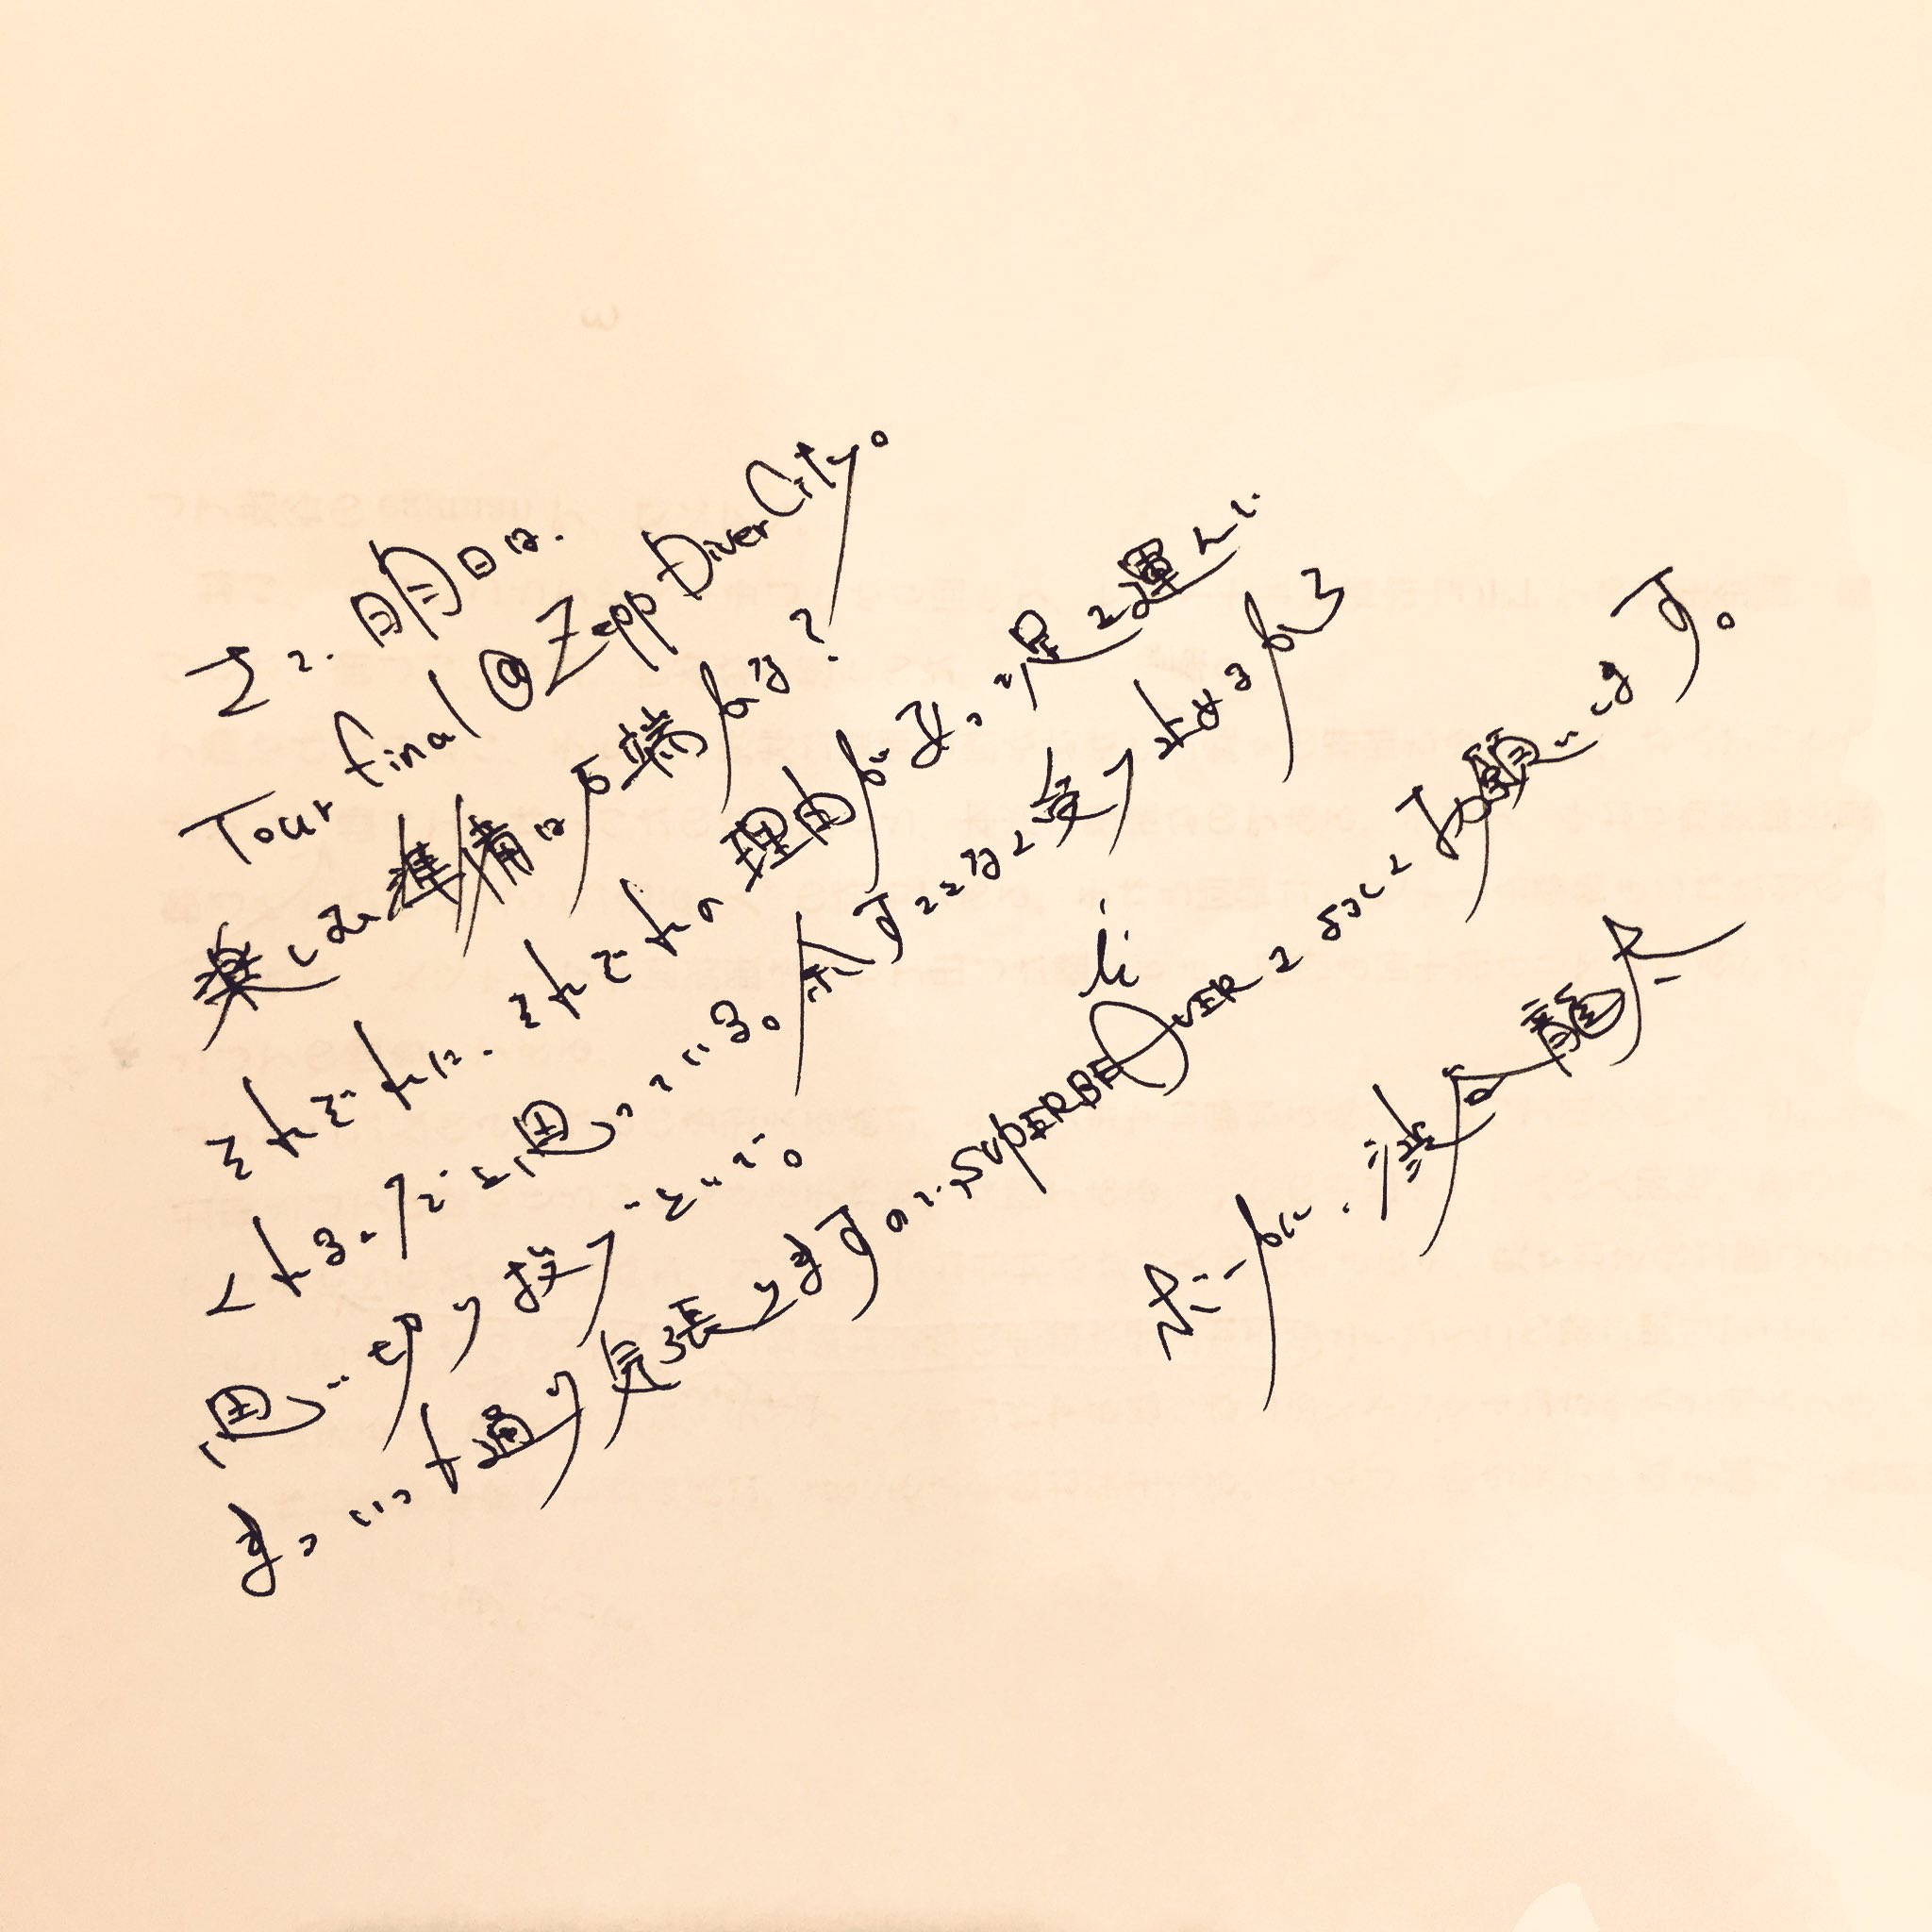 さて、明日は、
Tour final @Zepp DiverCity。
楽しみ準備は万端かな?
それぞれに、それぞれの理由があって、足を運んで
くれると思っている。余すことなく受け止めるから
思い切り投げといで。
まっいつも通り気張りますので、SUPERBEAVERをよろしくお願いします。
ボーカル、渋谷龍太